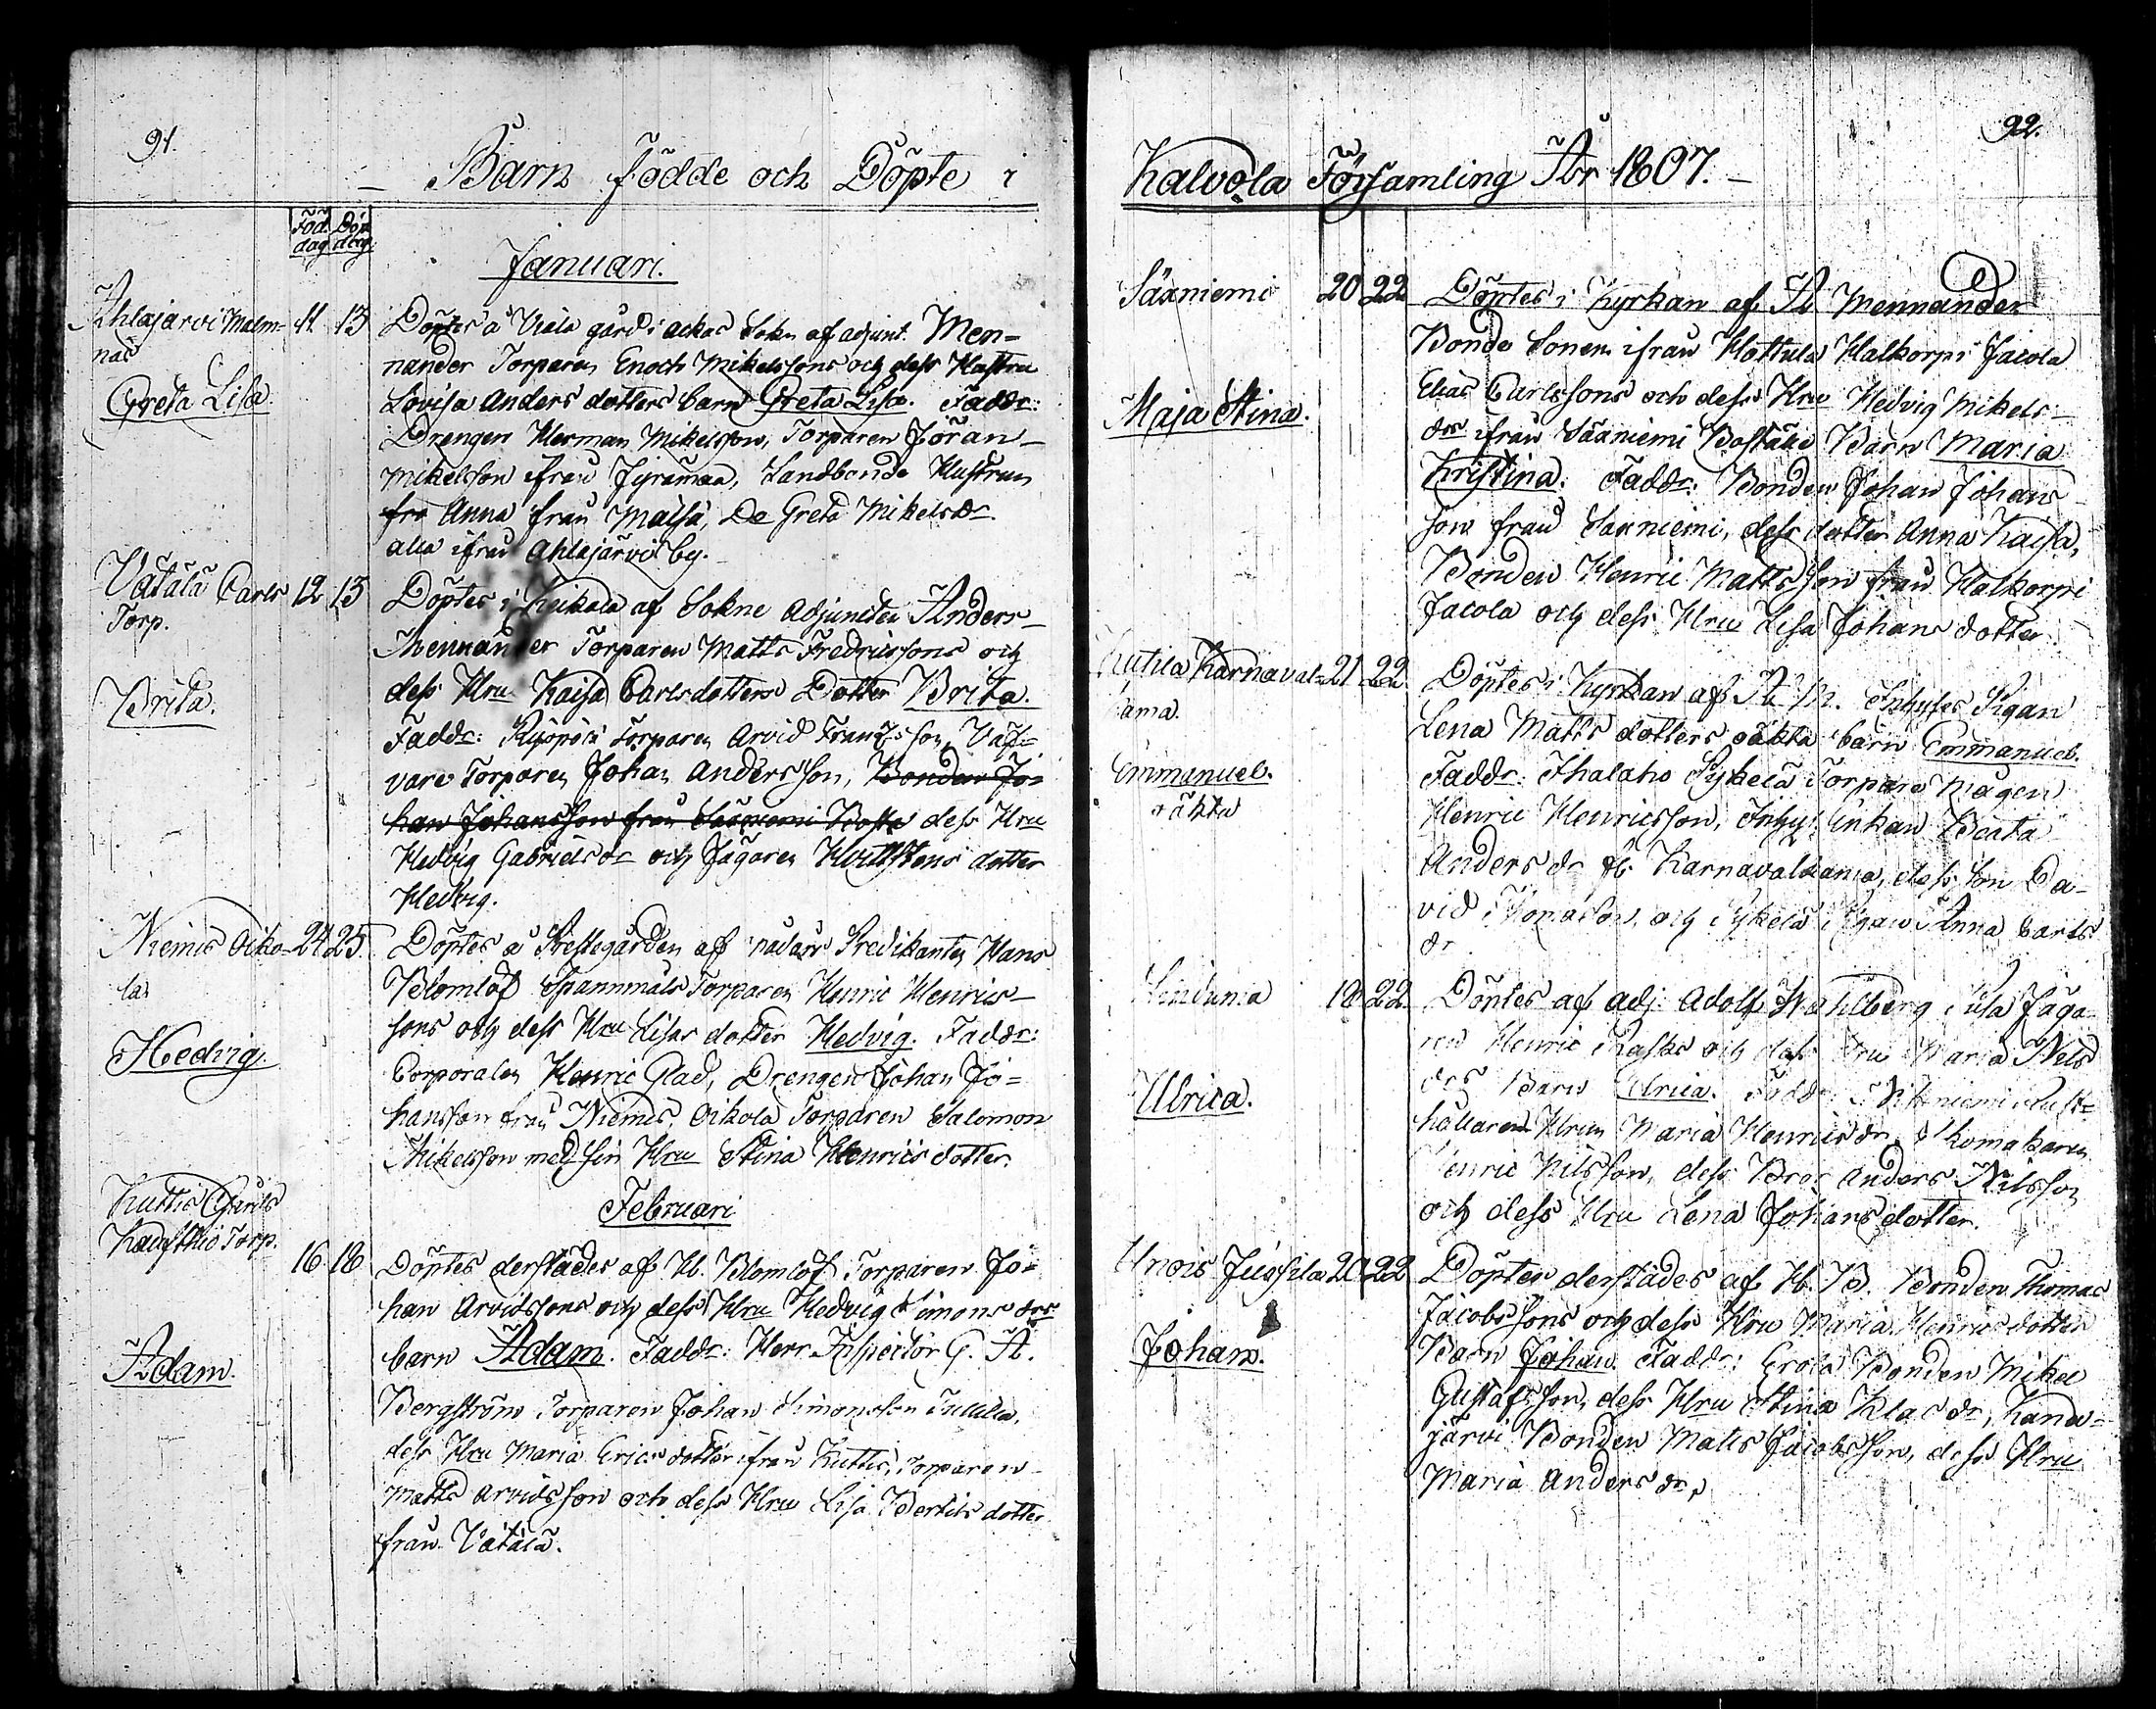 91.
Barn födde och Döpte i
Föd. Döp
dag. dag.
Januari.
Ahlajärvi Malm= 11 13
näs
Greta Lisa
Döptes å Viala gård i ackas Sokn af adjunct. Men=
nander Torparen Enoch Mikelssons och dess Hustru
Lovisa Anders dotters barn Greta Lisa. Faddr:
Drengen Herman Mikelsson, Torparen Jöran
Mikelsson ifrån Jyrämaa, Landbonde Hustrun
fro Anna från De Greta Mikelsdr.
alla ifrån Ahlajärvi by.
Vätälä Carls 12 13
Torp.
Brita.
Döptes i af Sokne Adjuncten Anders
Mennander Torparen Matts Fredricssons och
dess Hru Kaisa Carlsdotters Dotter Brita.
Faddr: Torparen Arvid Franzsson,
vare Torparen Johan Andersson, Bonden Jo=
han Johansson från Säxniemi dess Hru
Hedvig Gabrielsdr och Jägaren dotter
Hedvig.
Niemis Oiko= 24 25
la
Hedvig.
Döptes å Prestegården af Predikanten Hans
Blomlöf Spannmåls Torparen Henric Henrics
sons och dess Hru Lisas dotter Hedvig. Faddr:
Corporalen Henric Glad, Drengen Johan Jo=
hansson från Niemis, Oikola Torparen Salomon
Mikelsson med sin Hru Stina Henrics dotter.
Februari
Kuttis Carls
Torp. 16 18
Adam.
Döptes derstädes af H. Blomlöf Torparen Jo=
han Arvidssons och dess Hru Hedvig Simons drs
barn Adam. Faddr: Herr Inspector G. A.
Bergström Torparen Johan Simonsson
dess Hru Maria Erics dotter ifrån Kuttis, Torparen
Matts Arvidsson och dess Hru Lisa Bertils dotter
från Vätälä.
92.
Kalvola Församling År 1807.
Säxniemi 20 22
Maja Stina.
Döptes i Kyrkan af A. Mennander
Bonde Sonen ifrån Hattula Halkorpi Jacola
Elias Carlssons och dess Hru Hedvig Mikels
drs ifrån Säxniemi Boställe Barn Maria
Kristina. Faddr: Bonden Johan Johans
son från Säxniemi, dess dotter Anna Kaisa,
Bonden Henric Mattsson från Halkorpi
Jacola och dess Hru Lisa Johans dotter.
Kutila Karnaval= 21 22
kama.
Emmanuel.
oäkta
Döptes i Kyrkan af A. M. Inhyses Pigan
Lena Matts dotters oäkta barn Emmanuel.
Faddr: Ihalaho Sykelä Torpare Mågen
Henric Henricsson, Inhys: änkan Beata
Anders dr fr. Karnavalkama, dess son Da-
vid Thomasson, och Sykelä Pigan Anna Carls
dr
18 22
Ulrica.
Döptes af adj. Adolf Wahlberg Jäga
ren Henric Rask och dess Hru Maria Nils
drs Barn Ulrica. Faddr: Rust=
hållaren Hrun Maria Henricsdr, Skomakaren
Henric Nilsson, dess Bror Anders Nilsson
och dess Hru Lena Johansdotter.
Unois Jussila 20 22
Johan.
Döptes derstädes af H. B. Bonden Thomas
Jacobssons och dess Hru Maria Henricsdotter
Barn Johan. Faddr: Erola Bonden Mikel
Gustafsson, dess Hru Stina Klasdr, Kana=
järvi Bonden Matts Jacobsson, dess Hru
Maria Anders dr,